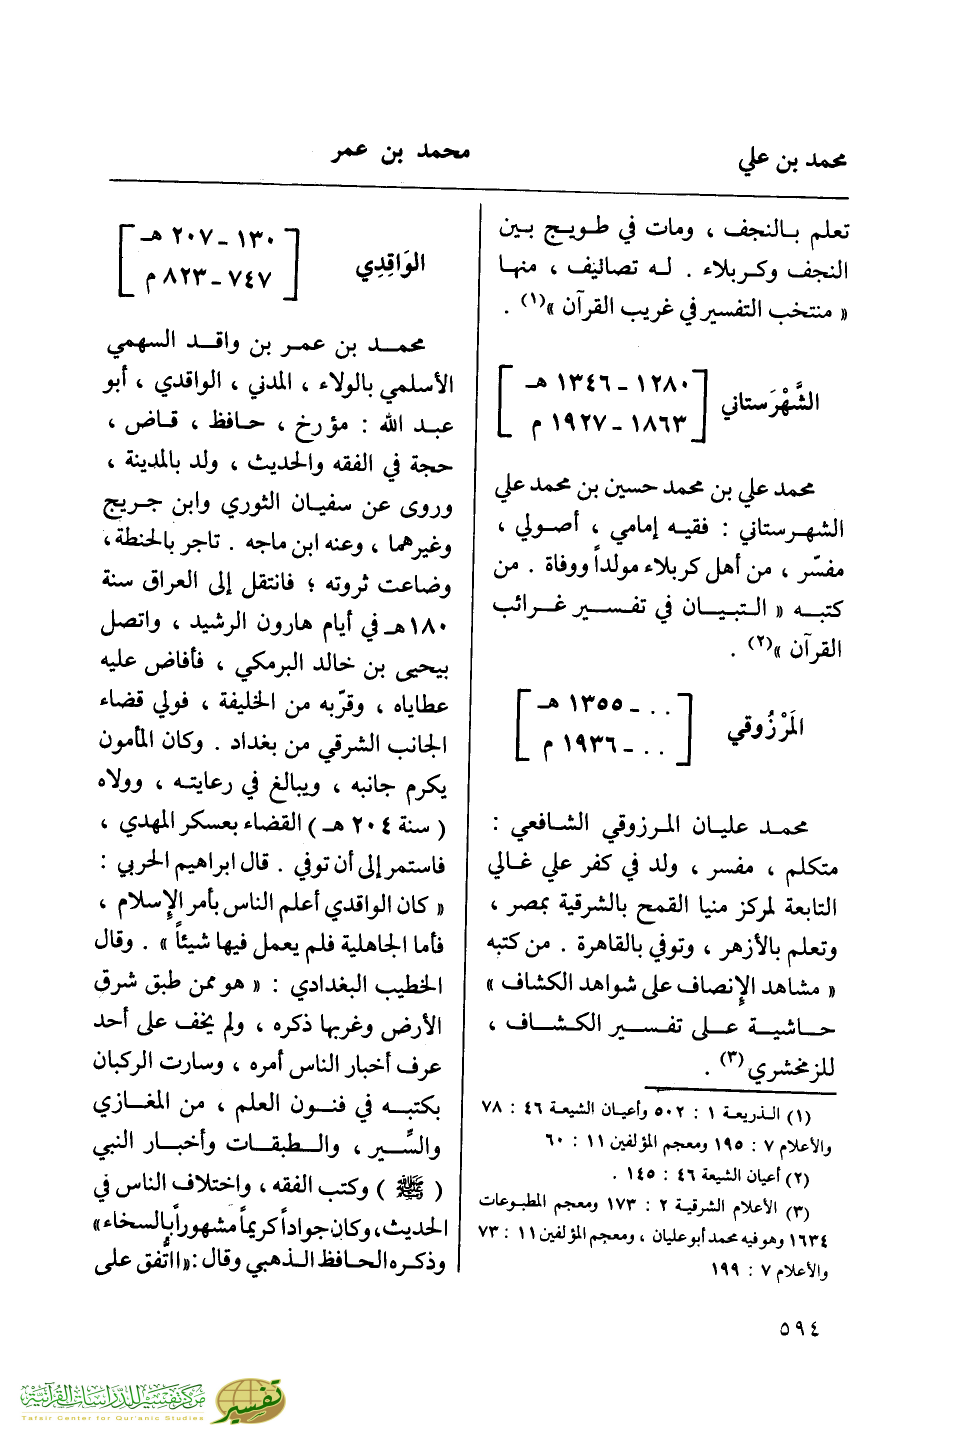 محمد بن علي
محمد بن عمر
تعلم بالنجف ، ومات في طويج بين
النجف وكربلاء . له تصانيف ، منها
« منتخب التفسير في غريب القرآن »(١) .
الشَّهْرَستاني
[ ١٢٨٠ - ١٣٤٦ هـ
١٨٦٣ - ١٩٢٧ م ]
محمد علي بن محمد حسين بن محمد علي
الشهرستاني : فقيه إمامي ، أصولي ،
مفسّر ، من أهل كربلاء مولداً ووفاة . من
كتبه « التبيان في تفسير غرائب
القرآن »(٢) .
المَرْزُوقي
[ . . - ١٣٥٥ هـ
. . - ١٩٣٦ م ]
محمد عليان المرزوقي الشافعي :
متكلم ، مفسر ، ولد في كفر علي غالي
التابعة لمركز منيا القمح بالشرقية بمصر ،
وتعلم بالأزهر ، وتوفي بالقاهرة . من كتبه
« مشاهد الإنصاف على شواهد الكشاف »
حاشية على تفسير الكشاف ،
للزمخشري (٣) .
(١) الذريعة ١ : ٥٠٢ وأعيان الشيعة ٤٦ : ٧٨
والأعلام ٧ : ١٩٥ ومعجم المؤلفين ١١ : ٦٠
(٢) أعيان الشيعة ٤٦ : ١٤٥ .
(٣) الأعلام الشرقية ٢ : ١٧٣ ومعجم المطبوعات
١٦٣٤ وهو فيه محمد أبو عليان ، ومعجم المؤلفين ١١ : ٧٣
والأعلام ٧ : ١٩٩
الوَاقِدِي
[ ١٣٠ - ٢٠٧ هـ
٧٤٧ - ٨٢٣ م ]
محمد بن عمر بن واقد السهمي
الأسلمي بالولاء ، المدني ، الواقدي ، أبو
عبد الله : مؤرخ ، حافظ ، قاض ،
حجة في الفقه والحديث ، ولد بالمدينة ،
وروى عن سفيان الثوري وابن جريج
وغيرهما ، وعنه ابن ماجه . تاجر بالحنطة ،
وضاعت ثروته ؛ فانتقل إلى العراق سنة
١٨٠ هـ في أيام هارون الرشيد ، واتصل
بيحيى بن خالد البرمكي ، فأفاض عليه
عطاياه ، وقرّبه من الخليفة ، فولي قضاء
الجانب الشرقي من بغداد . وكان المأمون
يكرم جانبه ، ويبالغ في رعايته ، وولاه
( سنة ٢٠٤ هـ ) القضاء بعسكر المهدي ،
فاستمر إلى أن توفي . قال ابراهيم الحربي :
« كان الواقدي أعلم الناس بأمر الإسلام ،
فأما الجاهلية فلم يعمل فيها شيئاً » . وقال
الخطيب البغدادي : « هو ممن طبق شرق
الأرض وغربها ذكره ، ولم يخف على أحد
عرف أخبار الناس أمره ، وسارت الركبان
بكتبه في فنون العلم ، من المغازي
والسِّير ، والطبقات وأخبار النبي
( ﷺ ) وكتب الفقه ، واختلاف الناس في
الحديث ، وكان جواداً كريماً مشهوراً بالسخاء »
وذكره الحافظ الذهبي وقال : « اتُّفق على
٥٩٤
مركز تفسير للدراسات القرآنية
Tafsir Center for Qur'anic Studies
تفسير